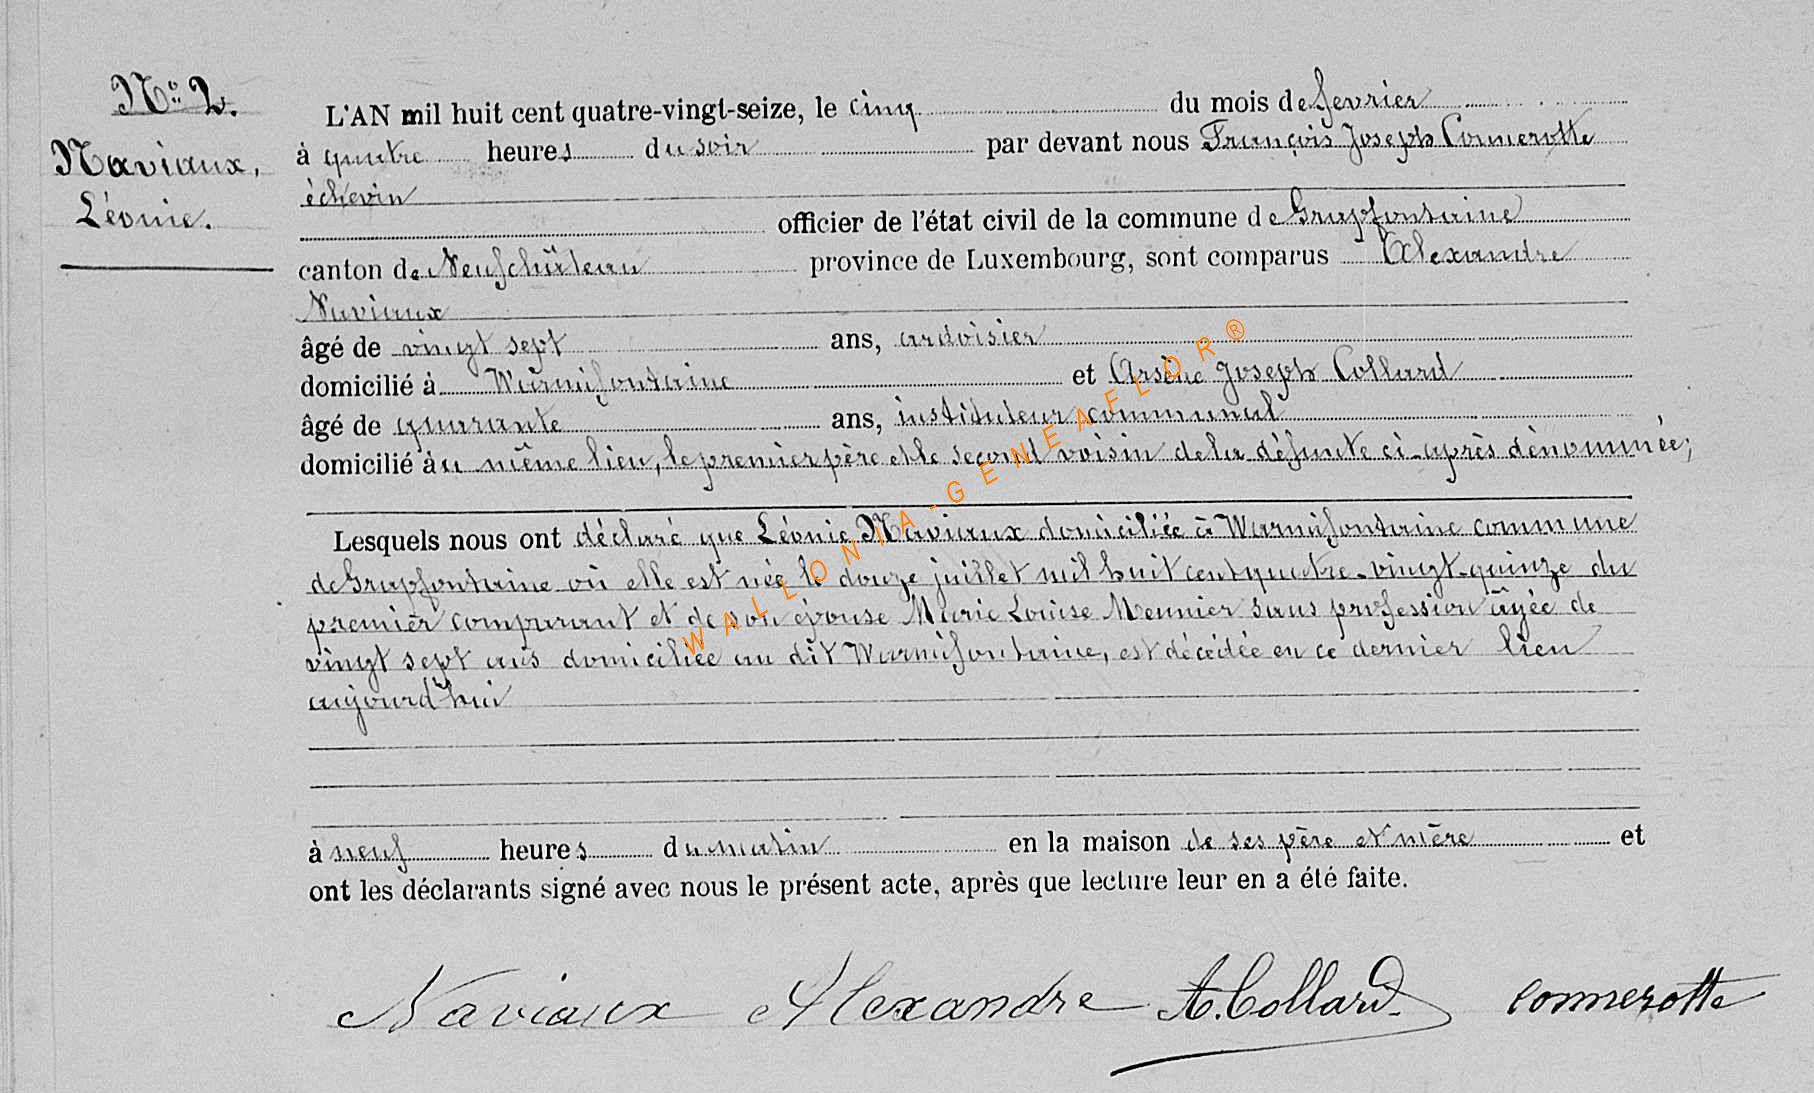 Nº 2.
Naviaux,
Léonie.
L'AN mil huit cent quatre-vingt-seize, le cinq du mois de fevrier
à quatre heures du soir par devant nous François Joseph Connerotte
échevin
officier de l'état civil de la commune de Grapfontaine
canton de Neufchâteau province de Luxembourg, sont comparus Alexandre
Naviaux
âgé de vingt sept ans, ardoisier
domicilié à Warmifontaine et Arsène Joseph Collard
âgé de quarante ans, instituteur communal
domicilié au même lieu, le premier père et le second voisin de la défunte ci-après dénommée;
Lesquels nous ont déclaré que Léonie Naviaux domiciliée à Warmifontaine commune
de Grapfontaine où elle est née le douze juillet mil huit cent quatre-vingt-quinze du
premier comparant et de son épouse Marie Louise Meunier sans profession âgée de
vingt sept ans domiciliée au dit Warmifontaine, est décédée en ce dernier lieu
aujourd'hui
à neuf heures du matin en la maison de ses père et mère et
ont les déclarants signé avec nous le présent acte, après que lecture leur en a été faite.
Naviaux Alexandre A. Collard. Connerotte
WALLONIA-GENEAFLOR®